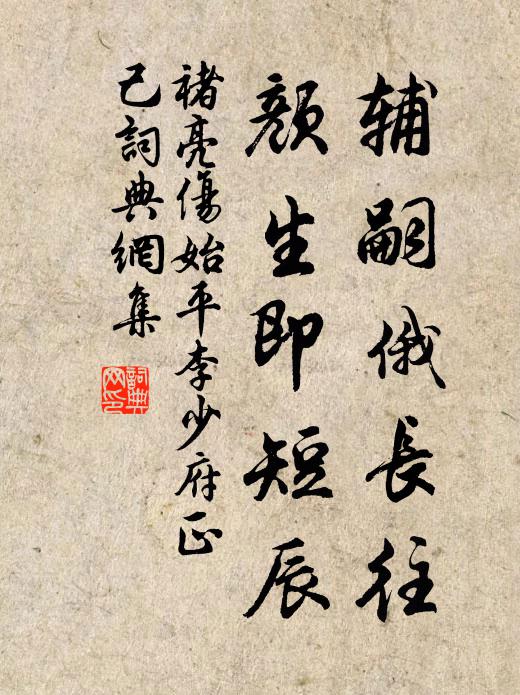 辅嗣俄長往
顏生即短辰
褚亮傷始平李少府正
己詞典網集
詞典网印